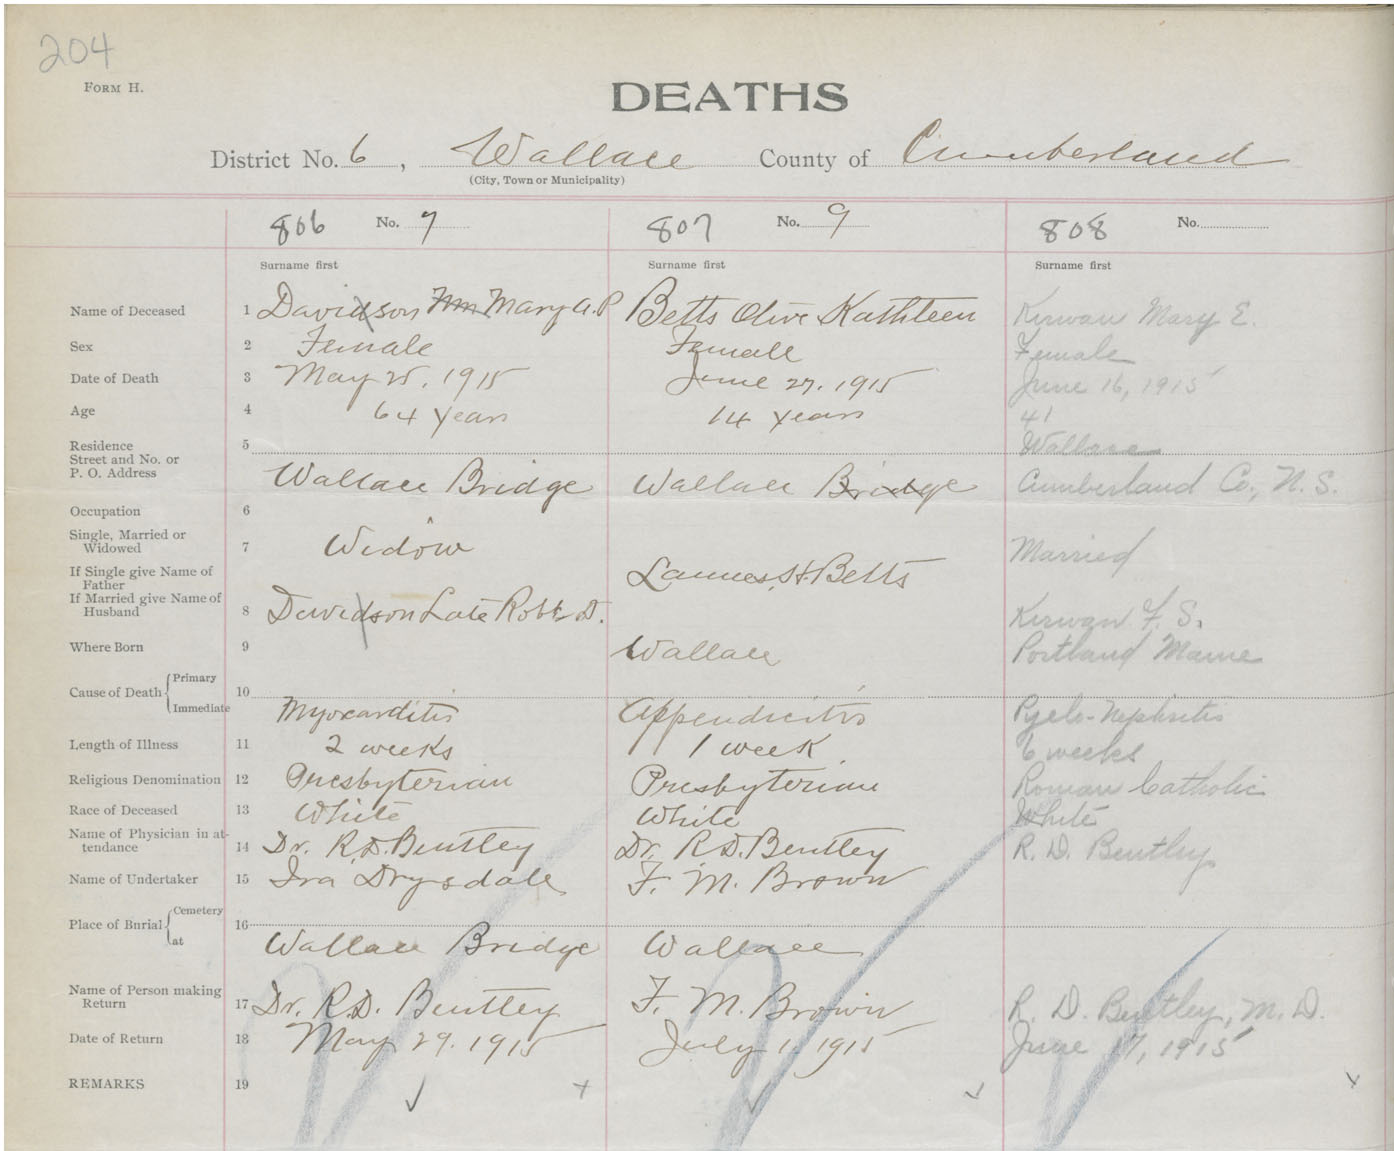 204
FORM H.
DEATHS
District No. 6, Wallace County of Cumberland
(City, Town or Municipality)
806 No. 7 807 No. 9 808 No.
Surname first Surname first Surname first
Name of Deceased 1 Davidson Wm Mary A. P Betts Olive Kathleen Kirwan Mary E.
Sex 2 Female Female Female
Date of Death 3 May 25, 1915 June 27, 1915 June 16, 1915
Age 4 64 years 14 years 41
Residence 5 Wallace
Street and No. or
P. O. Address Wallace Bridge Wallace Bridge Cumberland Co., N. S.
Occupation 6
Single, Married or
Widowed 7 Widow Married
If Single give Name of
Father H. Betts
If Married give Name of
Husband 8 Davidson Late Robt D. Kirwan F. S.
Where Born 9 Wallace Portland Maine
Cause of Death Primary 10
Immediate Myocarditis Appendicitis Pyelo-Nephritis
Length of Illness 11 2 weeks 1 week 6 weeks
Religious Denomination 12 Presbyterian Presbyterian Roman Catholic
Race of Deceased 13 White White White
Name of Physician in at-
tendance 14 Dr. R. D. Bentley Dr. R. D. Bentley R. D. Bentley
Name of Undertaker 15 Ira Drysdale F. M. Brown
Place of Burial Cemetery 16
at Wallace Bridge Wallace
Name of Person making
Return 17 Dr. R. D. Bentley F. M. Brown R. D. Bentley, M. D.
Date of Return 18 May 29, 1915 July 1, 1915 June 17, 1915
REMARKS 19